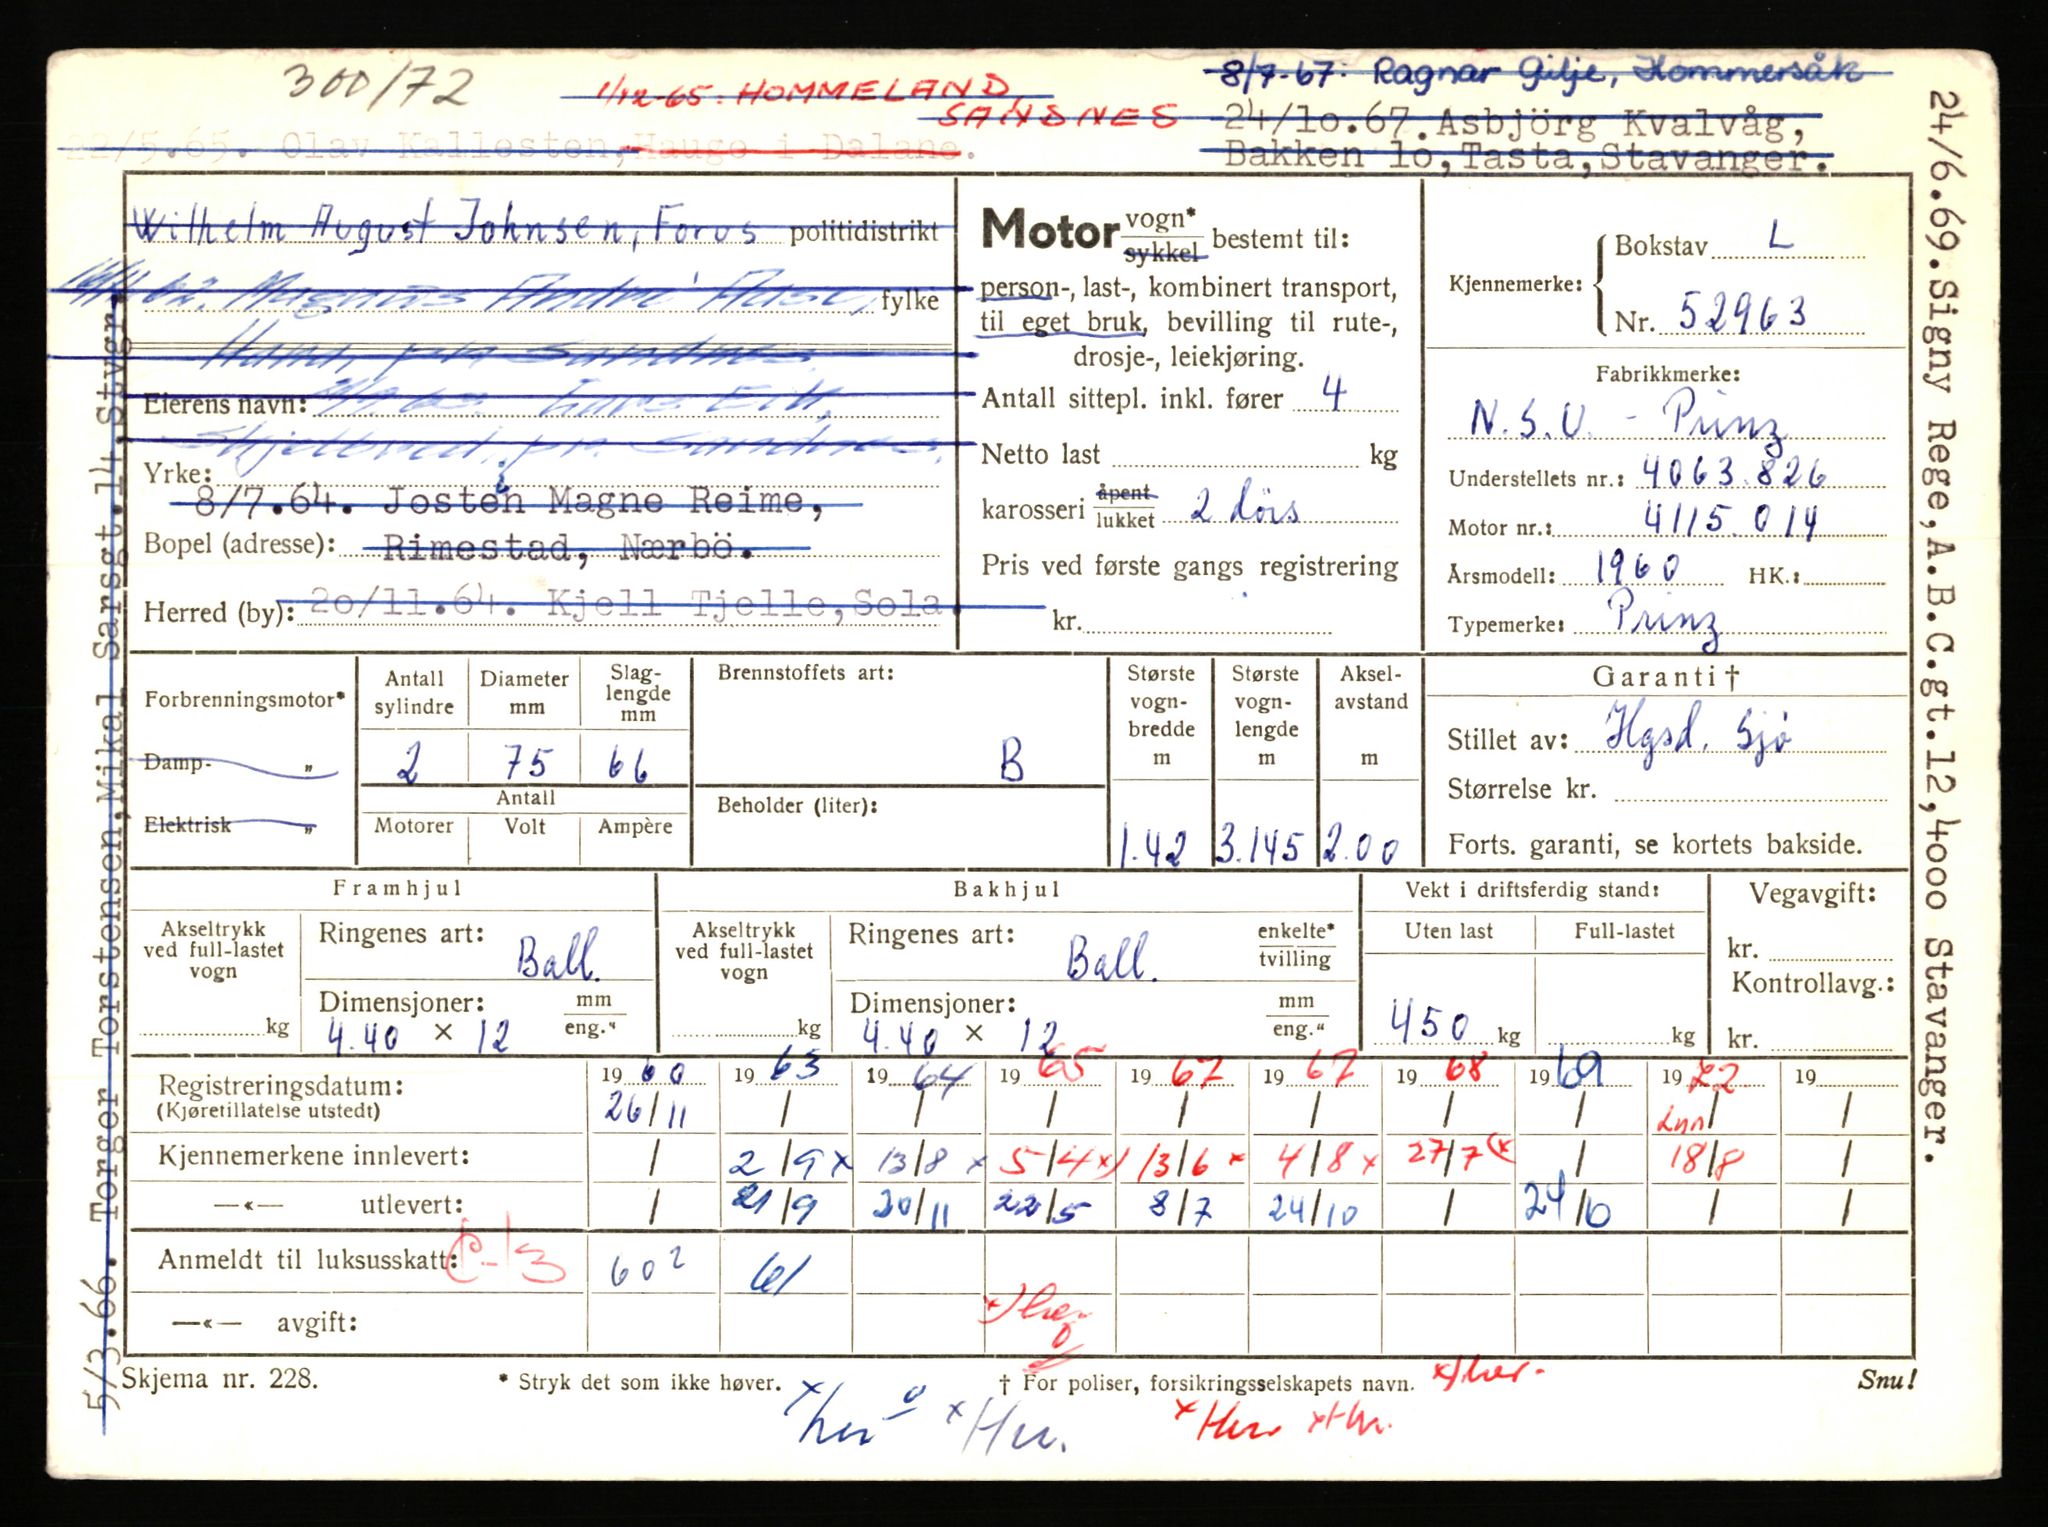 300/72
1/12-65. HOMMELAND
SANDNES
8/7-67: Ragnar Gilje, Hommersåk
24/10.67. Asbjörg Kvalvåg,
Bakken 10, Tasta, Stavanger.
22/5.65. Olav Kallesten, Hauge i Dalane.
Wilhelm August Johnsen, Forus politidistrikt
Magnus André Aase, fylke
pr. Sandnes
Eierens navn:
pr. Sandnes.
Yrke:
8/7.64. Josten Magne Reime,
Bopel (adresse): Rimestad, Nærbö.
Herred (by): 20/11.64. Kjell Tjelle, Sola.
Motor vogn* sykkel bestemt til:
person-, last-, kombinert transport,
til eget bruk, bevilling til rute-,
drosje-, leiekjøring.
Antall sittepl. inkl. fører 4
Netto last kg
karosseri åpent lukket 2 dörs
Pris ved første gangs registrering
kr.
Kjennemerke: Bokstav L
Nr. 52963
Fabrikkmerke:
N.S.U. - Prinz
Understellets nr.: 4063.826
Motor nr.: 4115.014
Årsmodell: 1960 HK.:
Typemerke: Prinz
Forbrenningsmotor*
Damp- „
Elektrisk „
Antall sylindre Diameter mm Slag-lengde mm
2 75 66
Antall
Motorer Volt Ampère
Brennstoffets art:
B
Beholder (liter):
Største vogn-bredde m Største vogn-lengde m Aksel-avstand m
1.42 3.145 2.00
Garanti †
Stillet av: Hgsd. Sjö
Størrelse kr.
Forts. garanti, se kortets bakside.
Framhjul
Akseltrykk ved full-lastet vogn
kg
Ringenes art: Ball.
Dimensjoner: mm eng."
4.40 × 12
Bakhjul
Akseltrykk ved full-lastet vogn
kg
Ringenes art: Ball. enkelte* tvilling
Dimensjoner: mm eng."
4.40 × 12
Vekt i driftsferdig stand:
Uten last Full-lastet
450 kg kg
Vegavgift:
kr.
Kontrollavg.:
kr.
Registreringsdatum: 1960 1963 1964 1965 1967 1967 1968 1969 1972 19
(Kjøretillatelse utstedt) 26/11 / / / / / / / / /
Kjennemerkene innlevert: / 2/9 x 13/8 x 5/4 x) 13/6 x 4/8 x 27/7 (x / 18/8 /
—«— utlevert: / 21/9 20/11 22/5 8/7 24/10 / 24/6 / /
Anmeldt til luksusskatt: 602 61
—«— avgift:
x) her
Skjema nr. 228.
* Stryk det som ikke høver.
† For poliser, forsikringsselskapets navn.
x) her-
Snu!
x her x Her. x Her x Hr.
5/3.66. Torger Torstensen, Mikal Sarsgt. 14, Stvgr.
24/6.69. Signy Rege, A.B.C.gt. 12, 4000 Stavanger.